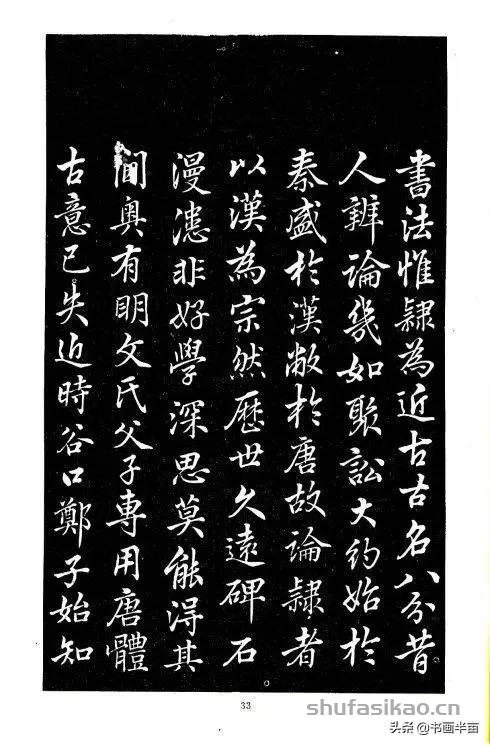 書法惟隸為近古古名八分昔
人辨論幾如聚訟大約始於
秦盛於漢敝於唐故論隸者
以漢為宗然歷世久遠碑石
漫漶非好學深思莫能得其
閫奧有明文氏父子專用唐體
古意已失近時谷口鄭子始知
33
shufasikao.cn
头条 @书画半亩